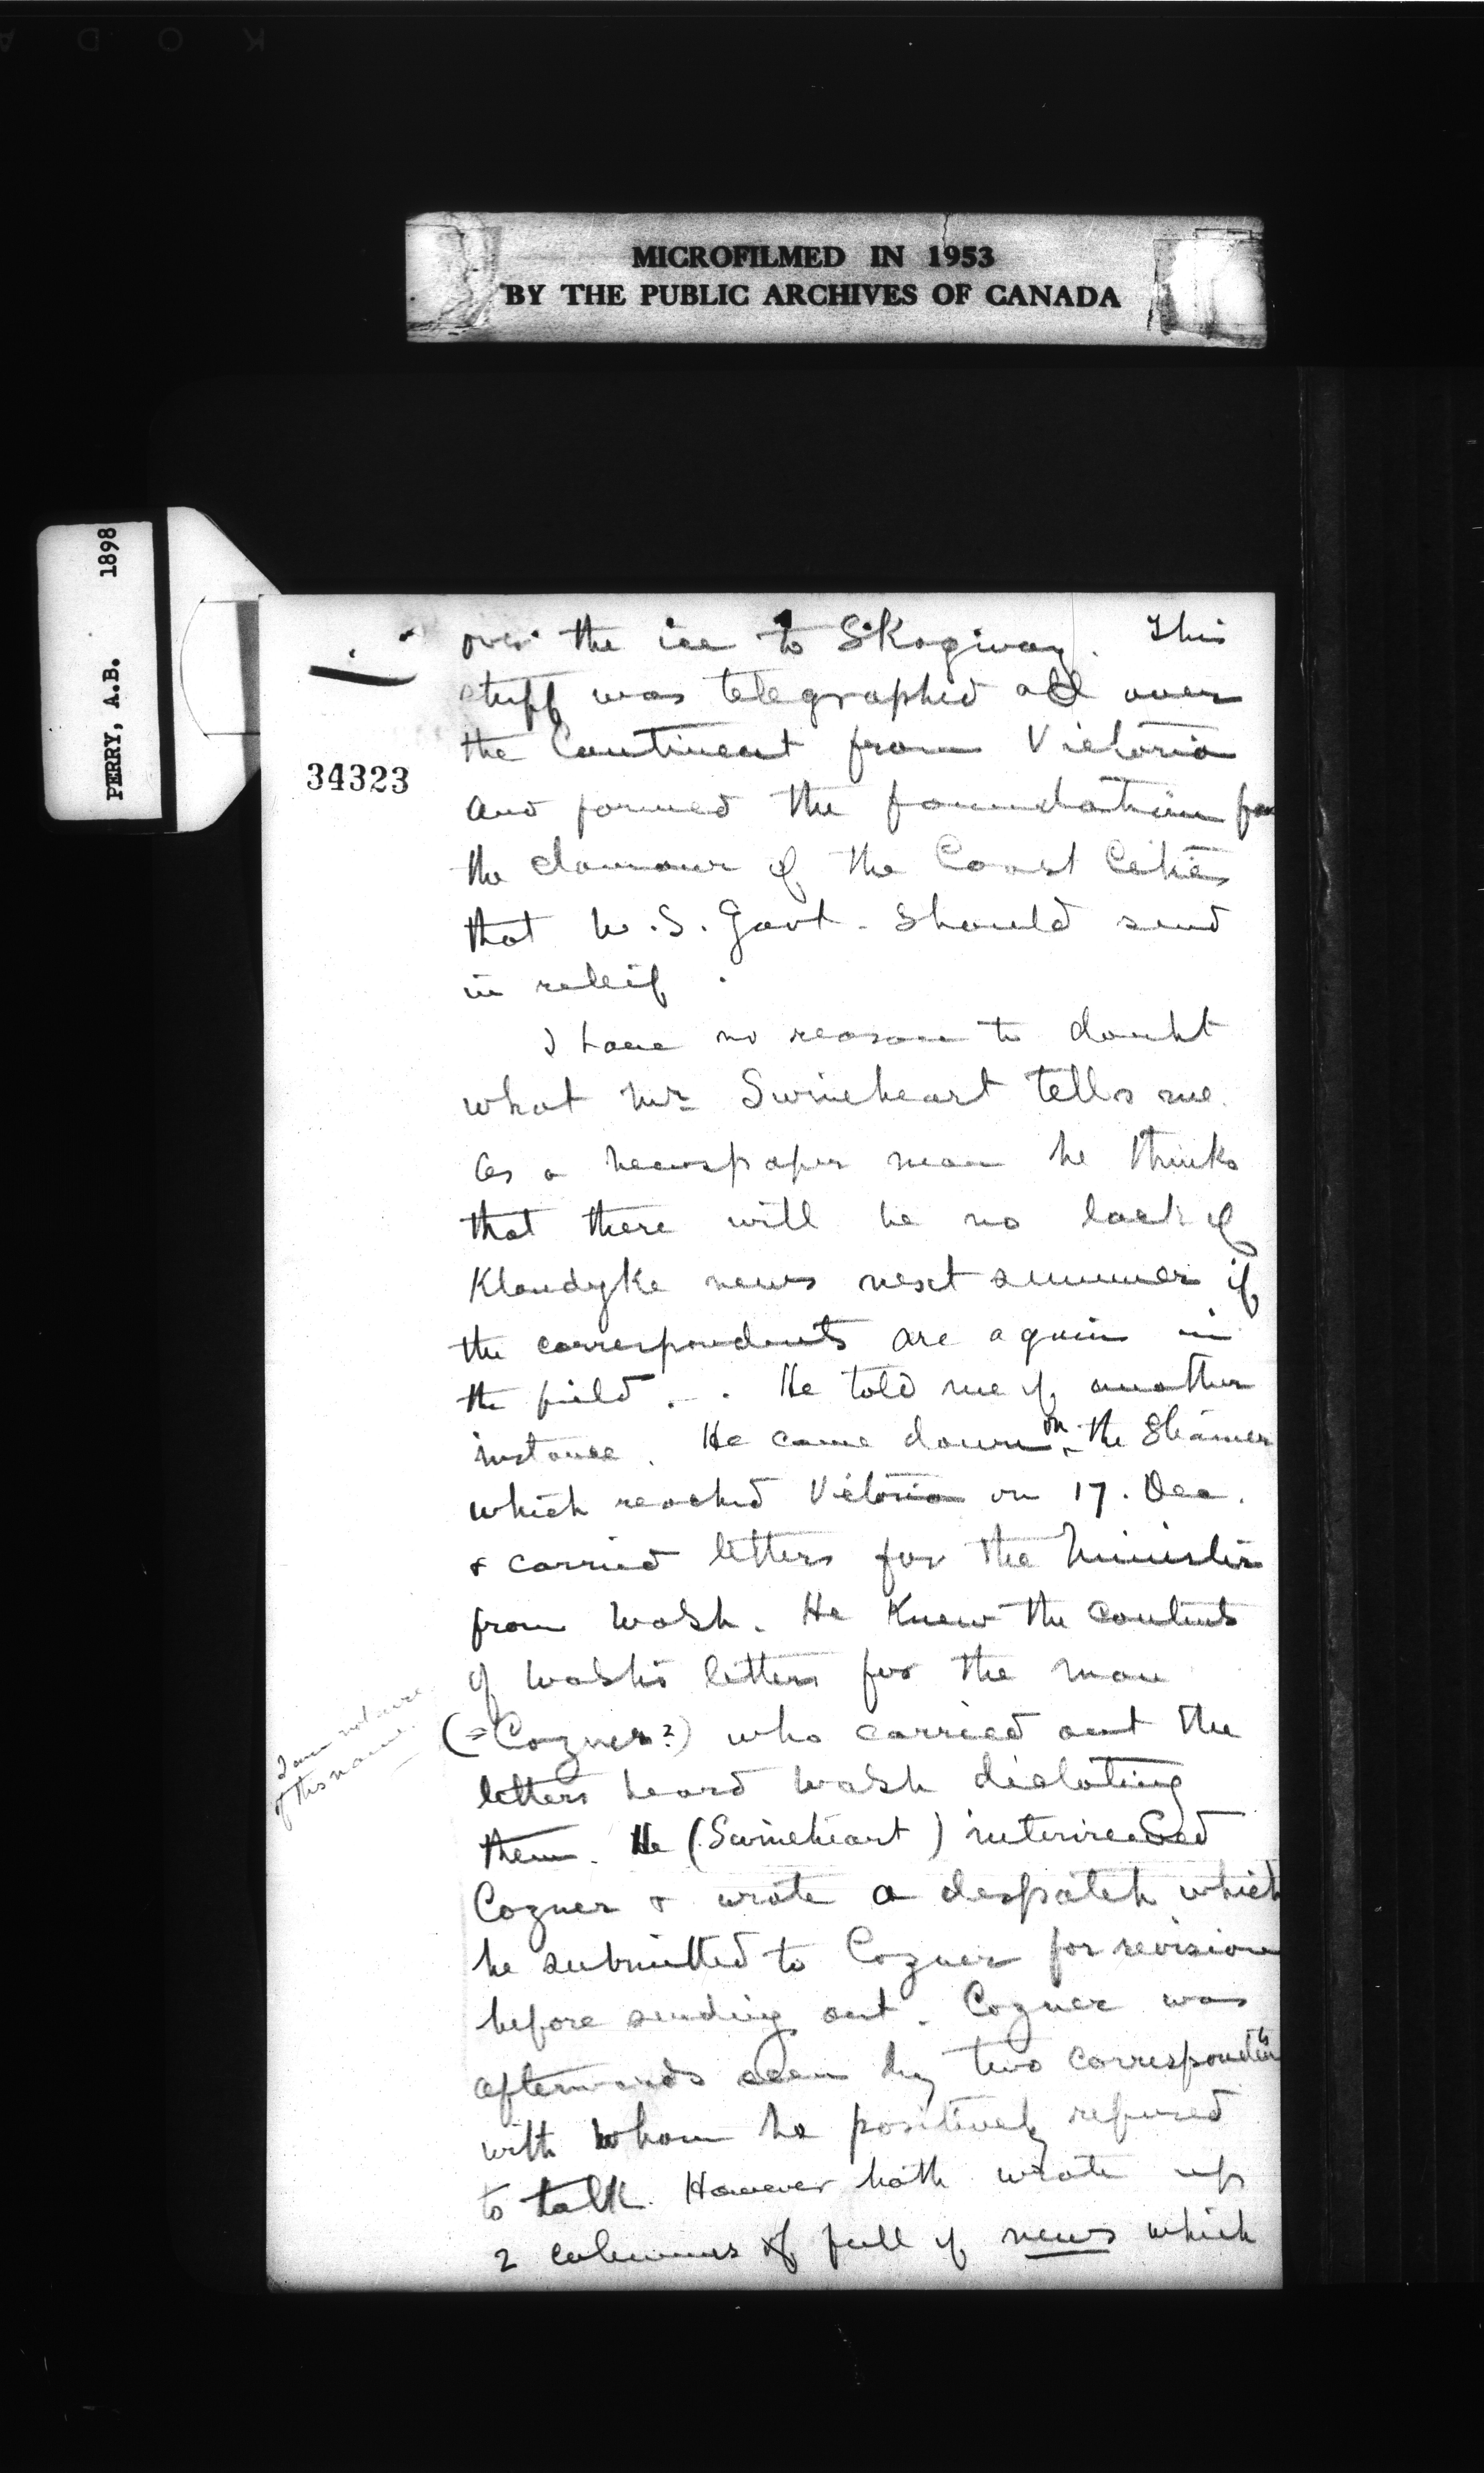 MICROFILMED IN 1953
BY THE PUBLIC ARCHIVES OF CANADA
PERRY, A.B. 1898
34323
over the ice to Skagway. This
stuff was telegraphed all over
the Continent from Victoria
and formed the foundation for
the clamour of the Coast Cities
that U.S. Govt. should send
in releif.
I have no reason to doubt
what Mr Swineheart tells me.
As a newspaper man he thinks
that there will be no lack of
Klondyke news next summer if
the correspondents are again in
the field. He told me of another
instance. He came down on the Steamer
which reached Victoria on 17. Dec.
& carried letters for the Minister
from Walsh. He knew the contents
of Walsh's letters for the man
(Cozner?) who carried out the
I am not sure
of this name.
letters heard Walsh dictating
them. He (Swineheart) interviewed
Cozner & wrote a despatch which
he submitted to Cozner for revision
before sending out. Cozner was
afterwards seen by two correspondents
with whom he positively refused
to talk. However both wrote up
2 columns full of news which